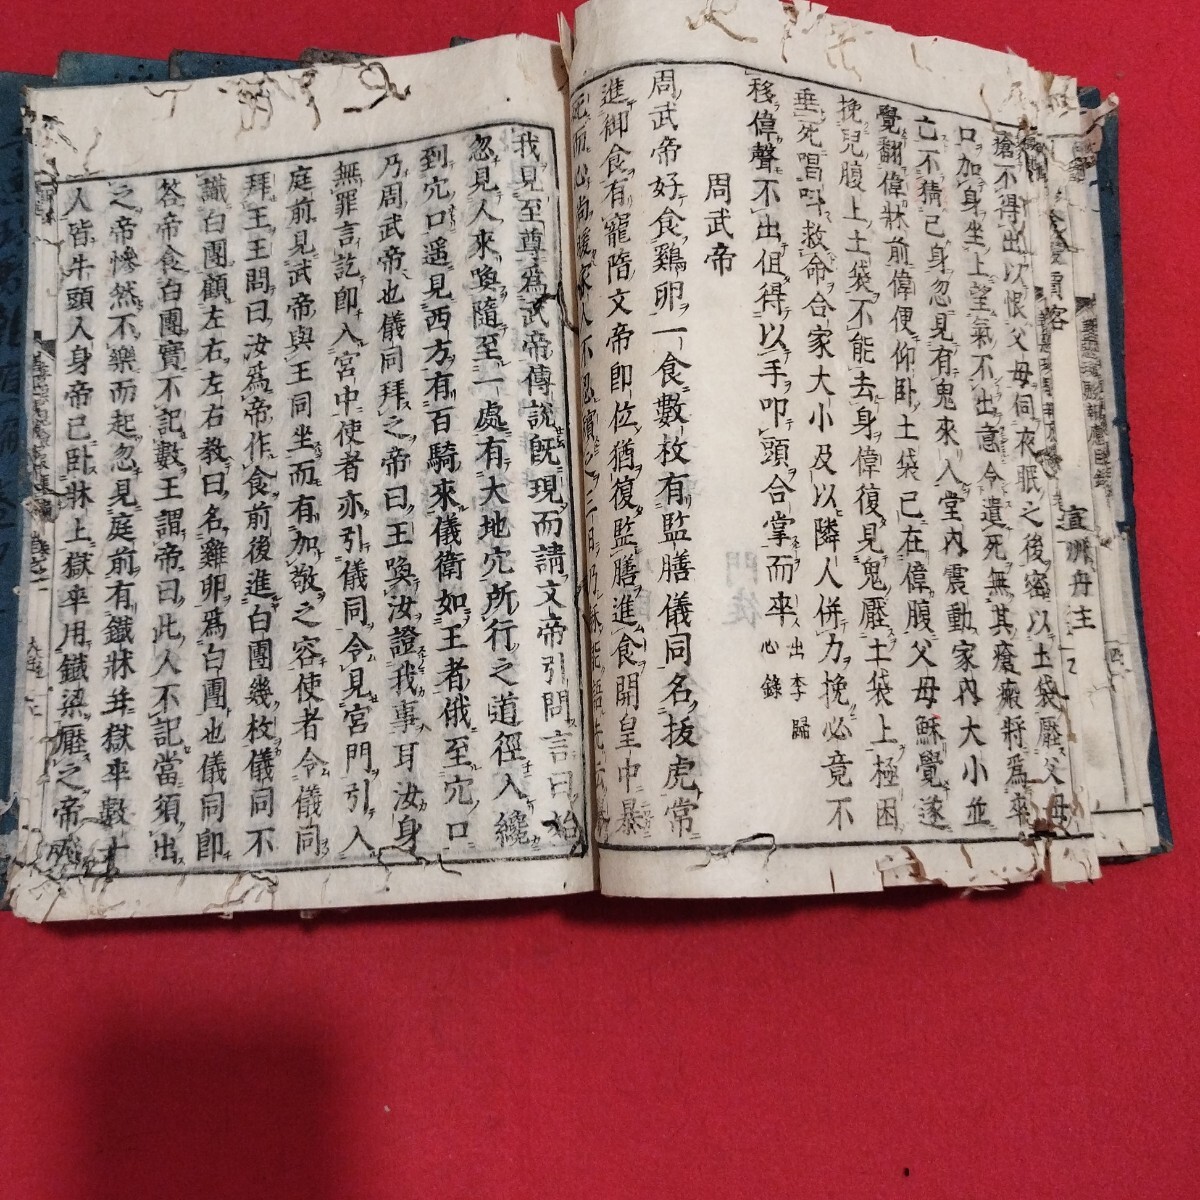 瘡不得出以恨父母伺夜眠之後密以土袋壓父母
口加身坐上望氣不出意令遣死無其瘡瘢將爲卒
亡不猜己身忽見有鬼來入堂內震動家內大小並
覺翻偉牀前偉便仰臥土袋已在偉腹父母穌覺遂
挽兒腹上土袋不能去身偉復見鬼壓土袋上極困
垂死唱叫救命合家大小及以隣人併力挽必竟不
移偉聲不出但得以手叩頭合掌而卒 出李歸心錄
周武帝
周武帝好食鷄卵一食數枚有監膳儀同名拔虎常
進御食有寵隋文帝卽位猶復監膳進食開皇中暴
死而心尚暖家人不忍殯之三日乃穌能語先云
我見至尊爲武帝傳說旣現而請文帝引問言曰始
忽見人來喚隨至一處有大地穴所行之道徑入纔
到穴口遙見西方有百騎來儀衛如王者俄至穴口
乃周武帝也儀同拜之帝曰王喚汝證我事耳汝身
無罪言訖卽入宮中使者亦引儀同令見宮門引入
庭前見武帝與王同坐而有加敬之容使者令儀同
拜王王問曰汝爲帝作食前後進白團幾枚儀同不
識白團顧左右左右敎曰名雞卵爲白團也儀同卽
答帝食白團實不記數王謂帝曰此人不記當須出
之帝慘然不樂而起忽見庭前有鐵牀并獄卒數十
人皆牛頭人身帝已臥牀上獄卒用鐵梁壓之帝